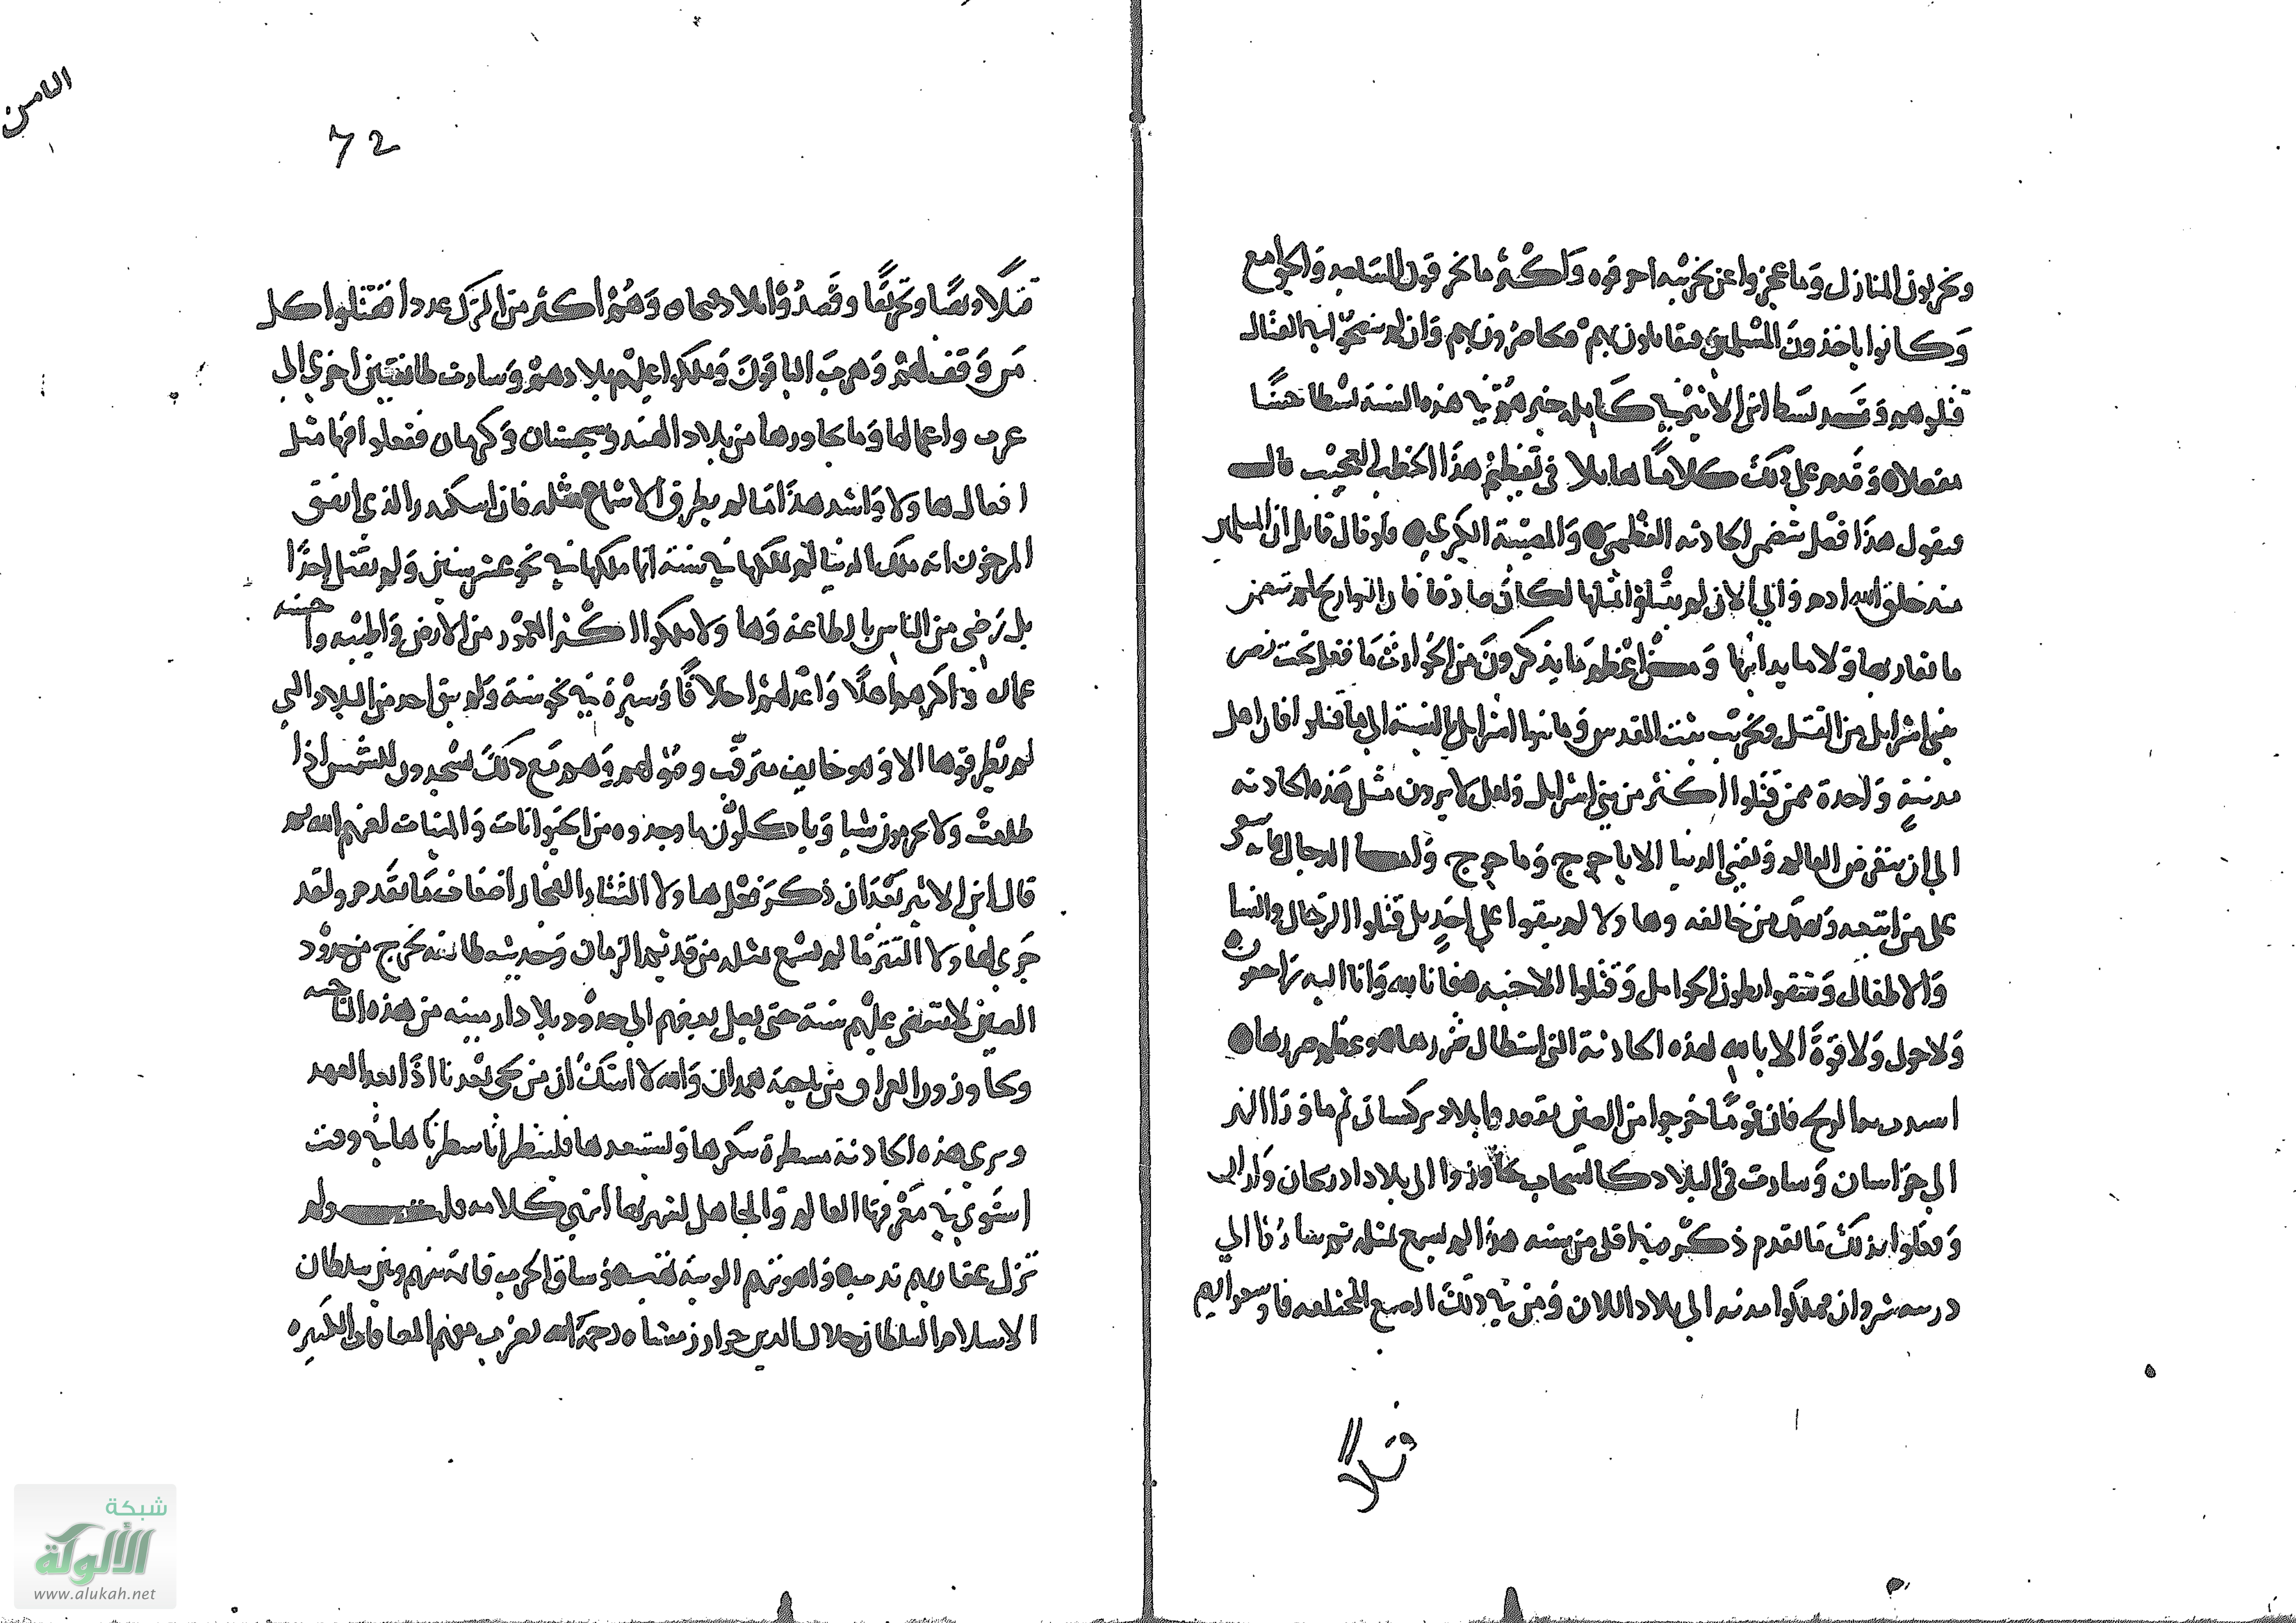 ويخربون المنازل وما عجزوا عن تخريبه احرقوه وأكثر ما يحرقون المساجد والجوامع
وكانوا ياخذون المسلمين فيقاتلون بهم ويحاصرون بهم وان لم ينصحوا في القتال
قتلوهم وقد بسط ابن الاثير في كامله خبرهم في هذه السنة بسطا حسنا
مفصلا وقدم على ذلك كلاما هايلا في تعظيم هذا الخطب العجيب قال
فنقول هذا فصل يتضمن الحادثه العظمى والمصيبة الكبرى فلو قال قايل ان العالم
منذ خلق الله ادم والي الان لم يبتلوا بمثلها لكان صادقا فان التواريخ لم تتضمن
ما يقاربها ولا ما يدانيها ومن اعظم ما يذكرون من الحوادث ما فعل بخت نصر
ببني اسرايل من القتل وتخريب بيت المقدس وما بنوا اسرايل بالنسبة الى ما قتلوا فان اهل
مدينة واحدة ممن قتلوا اكثر من بني اسرايل ولعل الخلايق لا يرون مثل هذه الحادثه
الي ان ينقرض العالم وتفنى الدنيا الا ياجوج وماجوج واما الدجال فانه يبقي
على من اتبعه ويهلك من خالفه وهاولا لم يبقوا على احد بل قتلوا الرجال والنسا
والاطفال وشقوا بطون الحوامل وقتلوا الاجنه فانا لله وانا اليه راجعون
ولا حول ولا قوة الا بالله لهذه الحادثة التي استطار شررها وعم ضررها
وسارت في البلاد كالسحاب استدبرته الريح فان قوما خرجوا من الصين فقصدوا بلاد تركستان ثم ما ورا النهر
الي خراسان وسارت في البلاد كالسحاب تجاوزوا الى بلاد اذربيجان واران
وفعلوا بذلك ما تقدم ذكره في اقل من سنه هذا لم يسمع بمثله ثم ساروا الي
دربند شروان فملكوا مدنه الي بلاد اللان ومن في ذلك الصقع المختلفه فاوسعوهم
قتلا
الثامن
72
قتلا ونهبا وتخريبا وقصدوا بلاد قفجاق وهم اكثر من الترك عددا فقتلوا كل
من وقف لهم وهرب الباقون وملكوا عليهم بلادهم وسارت طايفة اخري الى
غزنه واعمالها وما يجاورها من بلاد الهند وسجستان وكرمان ففعلوا فيها مثل
افعال هاولا واشد هذا ما لم يطرق الاسماع مثله فان اسكندر الذي اتفق
المورخون انه ملك الدنيا لم يملكها في سنة انما ملكها في نحو عشر سنين ولم يقتل احدا
بل رضي من الناس بالطاعه وهاولا ملكوا اكثر المعمور من الارض واطيبه واحسنه
عمارة واكثرهم اهلا واعدلهم اخلاقا وسيرة في نحو سنة ولم يبق احد من البلاد التي
لم يطرقوها الا وهو خايف مترقب وصولهم وهم مع ذلك يسجدون للشمس اذا
طلعت ولا يحرمون شيا وياكلون ما وجدوه من الحيوانات والميتات لعنهم الله
قال ابن الاثير بعد ان ذكر فعل هاولا التتار الفجار اضعاف ما تقدم ولقد
جري لهاولا التتر ما لم يسمع بمثله من قديم الزمان وحديثه طايفه تخرج من حدود
الصين لا تنقضي عليهم سنة حتى يصل بعضهم الي حدود بلاد ارمينيه من هذه الناحيه
وتجاوزوا العراق من ناحية همدان والله لا اشك ان من يجي بعدنا اذا بعد العهد
ويري هذه الحادثة مسطرة ينكرها ويستبعدها فلينظر انا سطرناها في وقت
استوي في معرفتها العالم والجاهل لشهرتها انتهي كلامه قلت ولم
تزل عقاربهم تدب واهويتهم الوبية تهب وساق الحرب قايمة بينهم وبين سلطان
الاسلام السلطان جلال الدين خوارزمشاه رحمه الله تعرب منهم المعافاه الكبيره
شبكة
الألوكة
www.alukah.net